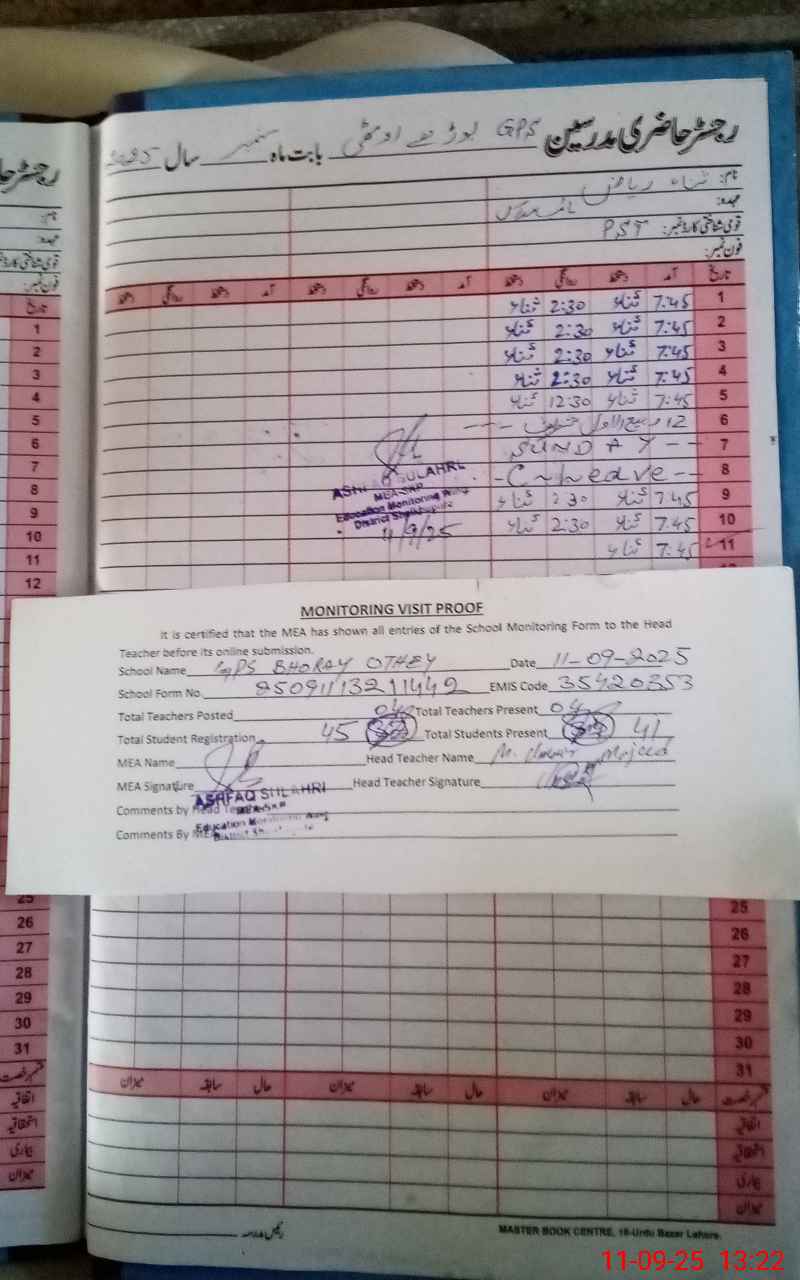 رجسٹر حاضری مدرسین GPS بوڑھے اوٹھی بابت ماہ ستمبر سال 2025
نام: ثناء ریاض
عہدہ:
قومی شناختی کارڈ نمبر: PST
فون نمبر:
تاریخ آمد دستخط روانگی دستخط آمد دستخط روانگی دستخط آمد دستخط روانگی دستخط
1 7:45 ثناء 2:30 ثناء
2 7:45 ثناء 2:30 ثناء
3 7:45 ثناء 2:30 ثناء
4 7:45 ثناء 2:30 ثناء
5 7:45 ثناء 12:30 ثناء
6 12 ربیع الاول
7 SUNDAY
8 leave
9 7:45 ثناء 2:30 ثناء
10 7:45 ثناء 2:30 ثناء
11 7:45 ثناء
ASHFAQ SULAHRI
MEA-SKP
Education Monitoring Wing
District
11/9/25
MONITORING VISIT PROOF
It is certified that the MEA has shown all entries of the School Monitoring Form to the Head
Teacher before its online submission.
School Name GPS BHORAY OTHEY Date 11-09-2025
School Form No. 85091113211442 EMIS Code 35420353
Total Teachers Posted 04 Total Teachers Present 04
Total Student Registration 45 Total Students Present 41
MEA Name Head Teacher Name M. Majeed
MEA Signature Head Teacher Signature
ASHFAQ SULAHRI
Comments by Head Teacher
MEA-SKP
Education Monitoring Wing
Comments By MEA
District
25
26
27
28
29
30
31
قسم رخصت حال سابقہ میزان حال سابقہ میزان حال سابقہ میزان
اتفاقیہ
استحقاقیہ
بیماری
میزان
رئیس مدرسہ
MASTER BOOK CENTRE, 18-Urdu Bazar Lahore.
رجسٹر حا
نام:
عہدہ:
قومی شناختی کارڈ
فون نمبر:
تاریخ
1
2
3
4
5
6
7
8
9
10
11
12
25
26
27
28
29
30
31
قسم رخصت
اتفاقیہ
استحقاقیہ
بیماری
میزان
11-09-25 13:22